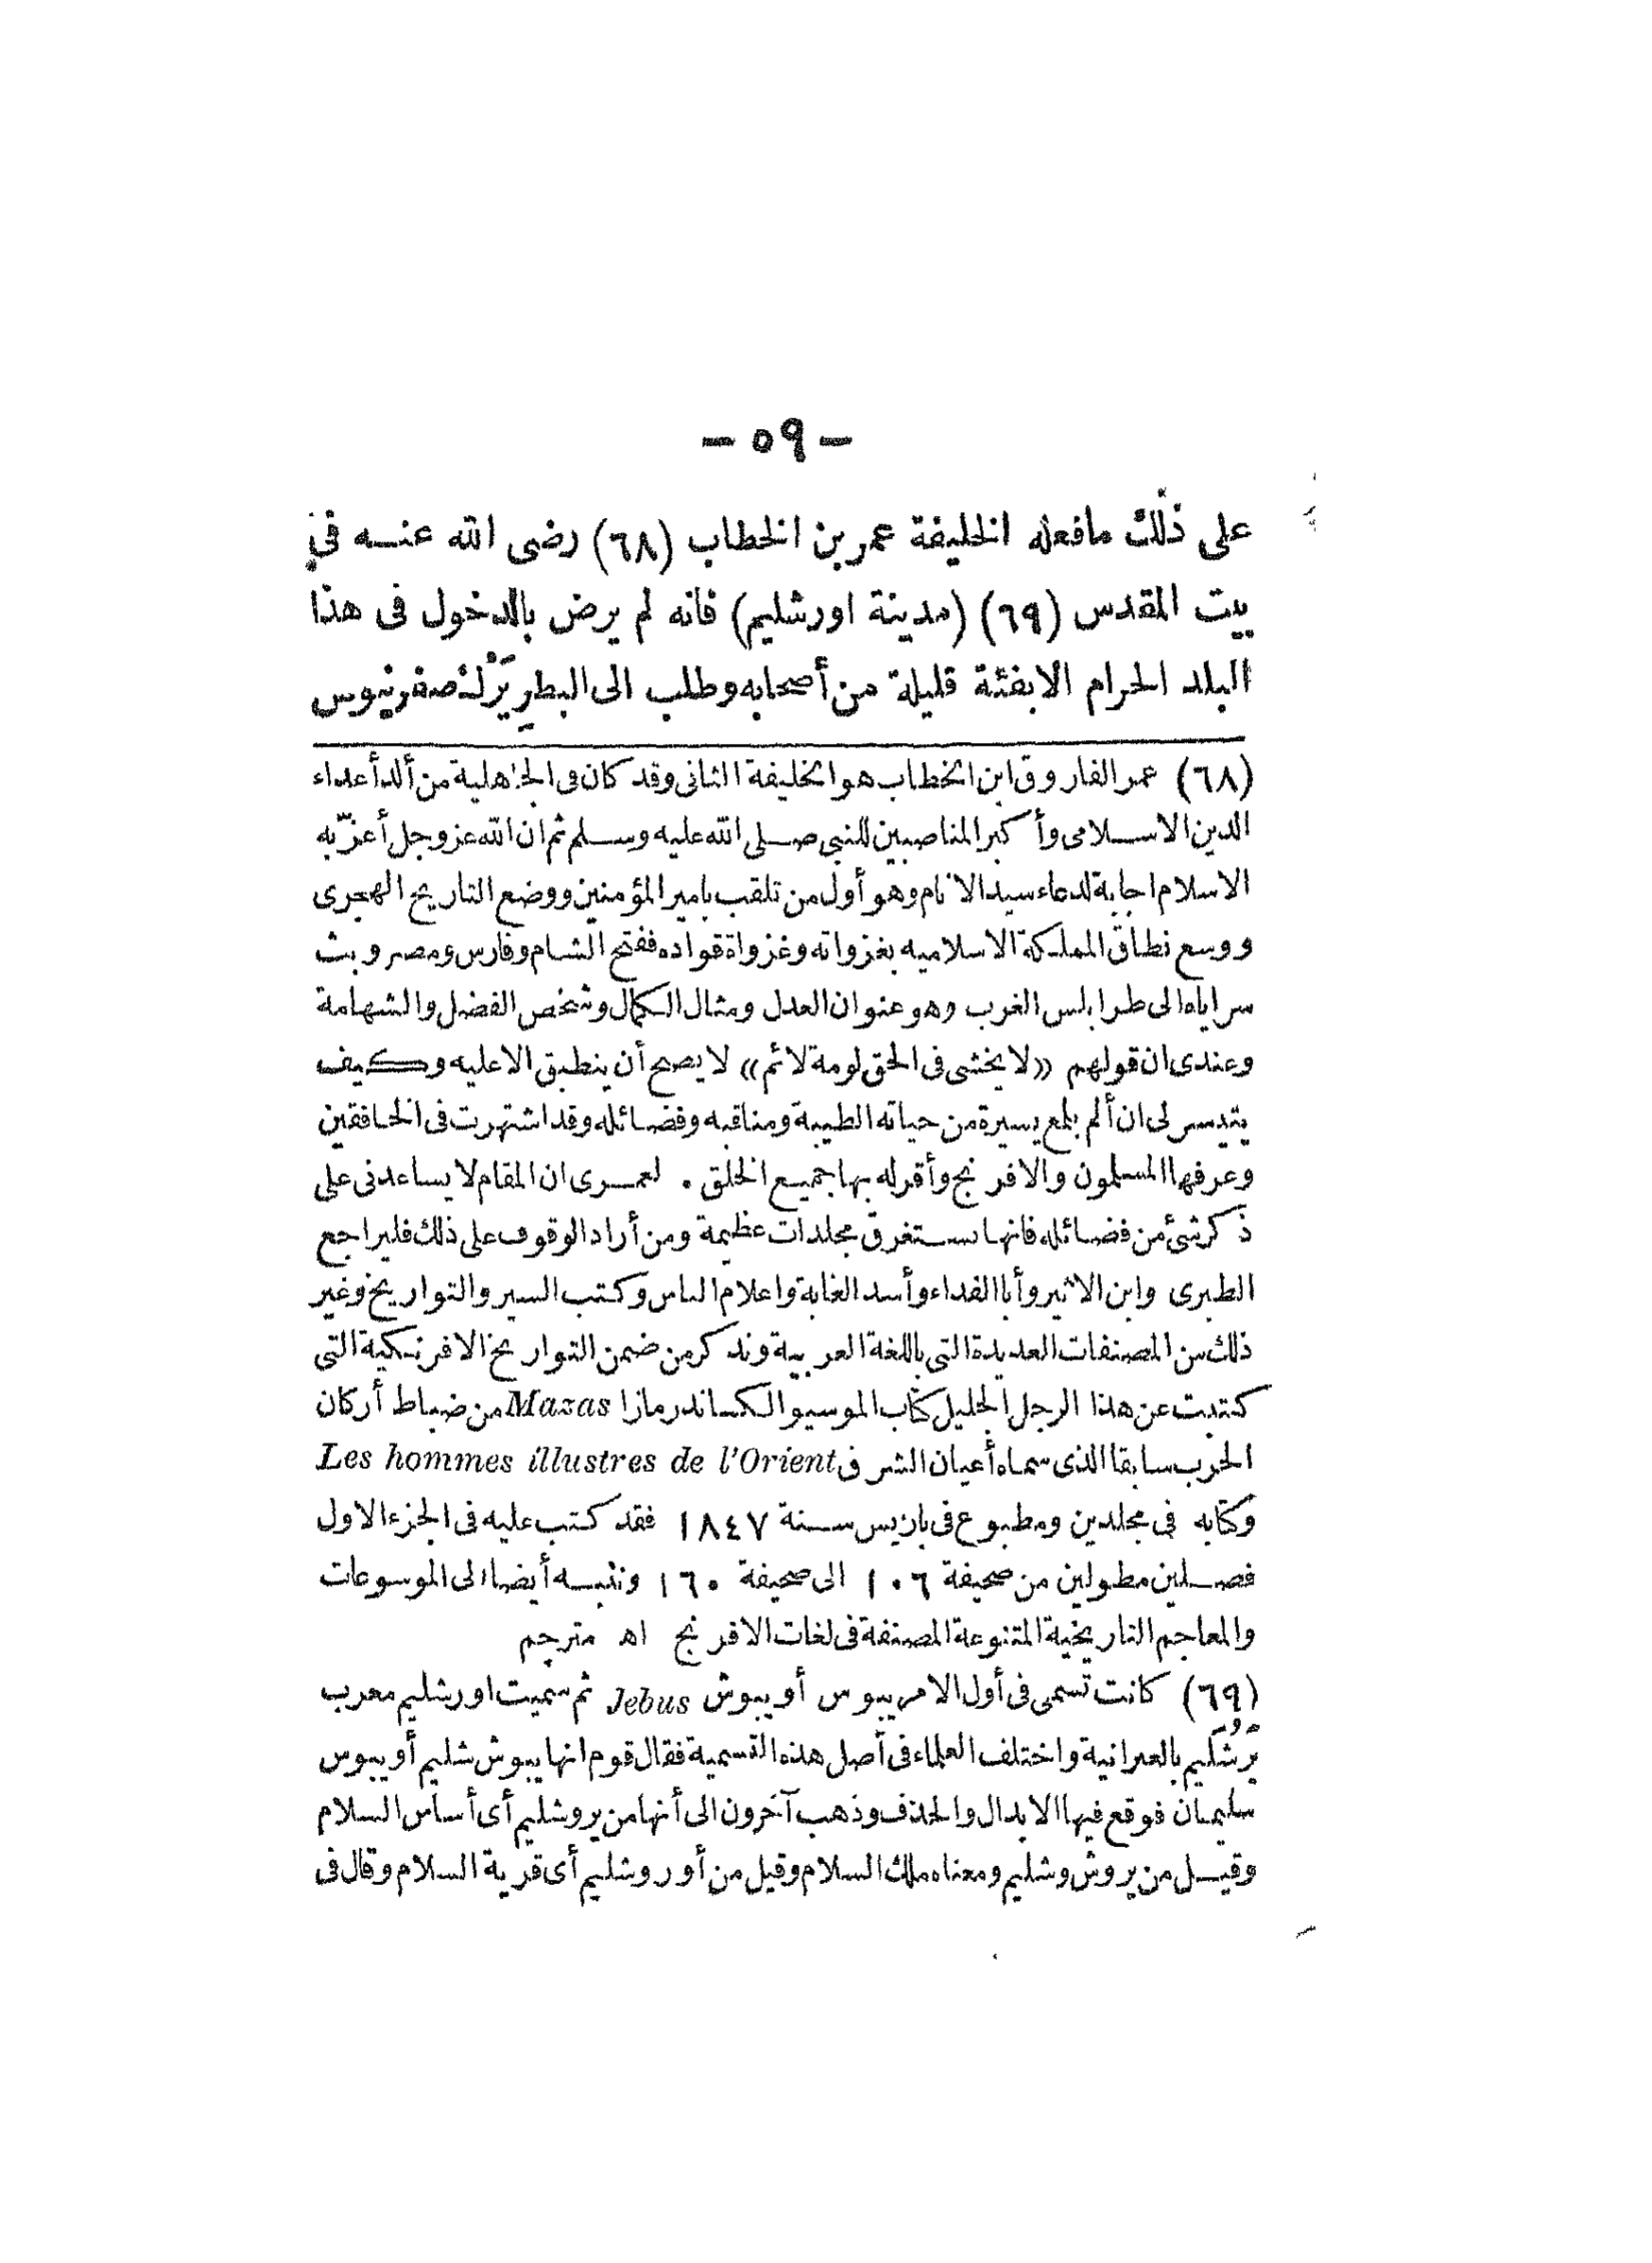 - ٥٩ -
على ذلك مافعله الخليفة عمر بن الخطاب (٦٨) رضى الله عنه في
بيت المقدس (٦٩) (مدينة اورشليم) فانه لم يرض بالدخول فى هذا
البلد الحرام الا بفئة قليلة من أصحابه وطلب الى البطرِيَرْك صفرنيوس
(٦٨) عمر الفاروق ابن الخطاب هو الخليفة الثانى وقد كان فى الجاهلية من ألد أعداء
الدين الاسلامى وأكبر المناصبين للنبى صلى الله عليه وسلم ثم ان الله عز وجل أعزّ به
الاسلام اجابة لدعاء سيد الانام وهو أول من تلقب بامير المؤمنين ووضع التاريخ الهجرى
ووسع نطاق المملكة الاسلاميه بغزواته وغزواة قواده ففتح الشام وفارس ومصر وبث
سراياه الى طرابلس الغرب وهو عنوان العدل ومثال الكمال وشخص الفضل والشهامة
وعندى ان قولهم «لا يخشى فى الحق لومة لائم» لا يصح أن ينطبق الا عليه وكيف
يتيسر لى ان ألم بلمع يسيرة من حياته الطيبة ومناقبه وفضائله وقد اشتهرت فى الخافقين
وعرفها المسلمون والافرنج وأقر له بها جميع الخلق . لعمرى ان المقام لا يساعدنى على
ذكر شئ من فضائله فانها تستغرق مجلدات عظيمة ومن أراد الوقوف على ذلك فليراجع
الطبرى وابن الاثير وأبا الفداء وأسد الغابة واعلام الناس وكتب السير والتواريخ وغير
ذلك من المصنفات العديدة التى باللغة العربية ونذكر من ضمن التواريخ الافرنكية التى
كتبت عن هذا الرجل الجليل كتاب الموسيو الكساندر مازا Mazas من ضباط أركان
الحرب سابقا الذى سماه أعيان الشرق Les hommes illustres de l'Orient
وكتابه فى مجلدين ومطبوع فى باريس سنة ١٨٤٧ فقد كتب عليه فى الجزء الاول
فصلين مطولين من صحيفة ١٠٦ الى صحيفة ١٦٠ وننبه أيضا الى الموسوعات
والمعاجم التاريخية المتنوعة المصنفة فى لغات الافرنج اه مترجم
(٦٩) كانت تسمى فى أول الامر يبوس أو يبوش Jebus ثم سميت اورشليم معرب
يَرُشَكيم بالعبرانية واختلف العلماء فى أصل هذه التسمية فقال قوم انها يبوش شليم أو يبوس
سليمان فوقع فيها الابدال والحذف وذهب آخرون الى أنها من يروشليم أى أساس السلام
وقيل من يروش وشليم ومعناه ملك السلام وقيل من أور وشليم أى قرية السلام وقال فى